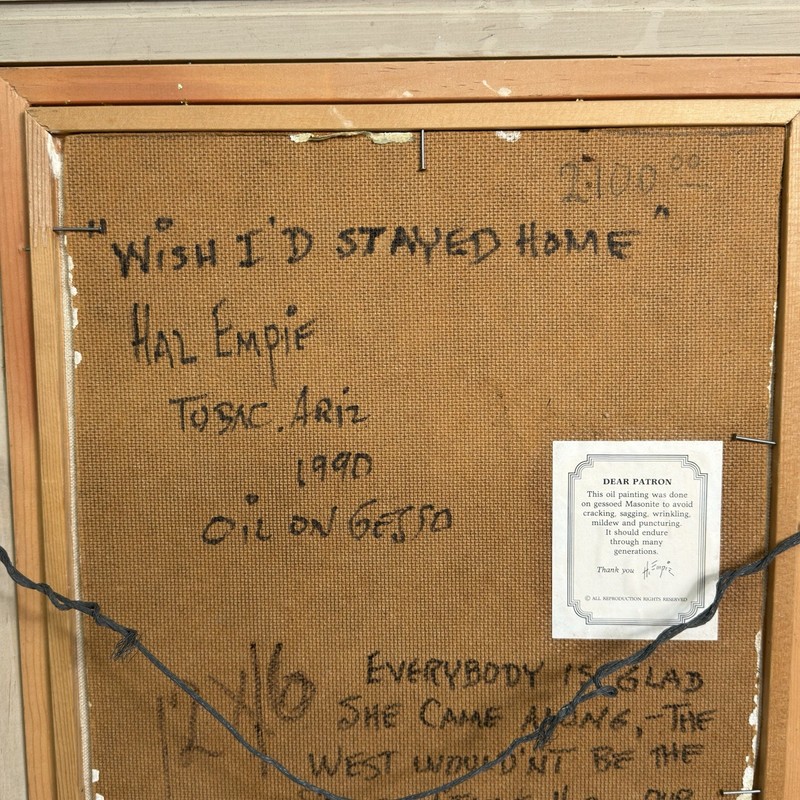 2100.00
"WISH I'D STAYED HOME"
HAL EMPIE
TUBAC, ARIZ
1990
OIL ON GESSO
DEAR PATRON
This oil painting was done
on gessoed Masonite to avoid
cracking, sagging, wrinkling,
mildew and puncturing.
It should endure
through many
generations.
Thank you H. Empie
© ALL REPRODUCTION RIGHTS RESERVED
12X16
EVERYBODY IS GLAD
SHE CAME ALONG,-THE
WEST WOULD'NT BE THE
OUR